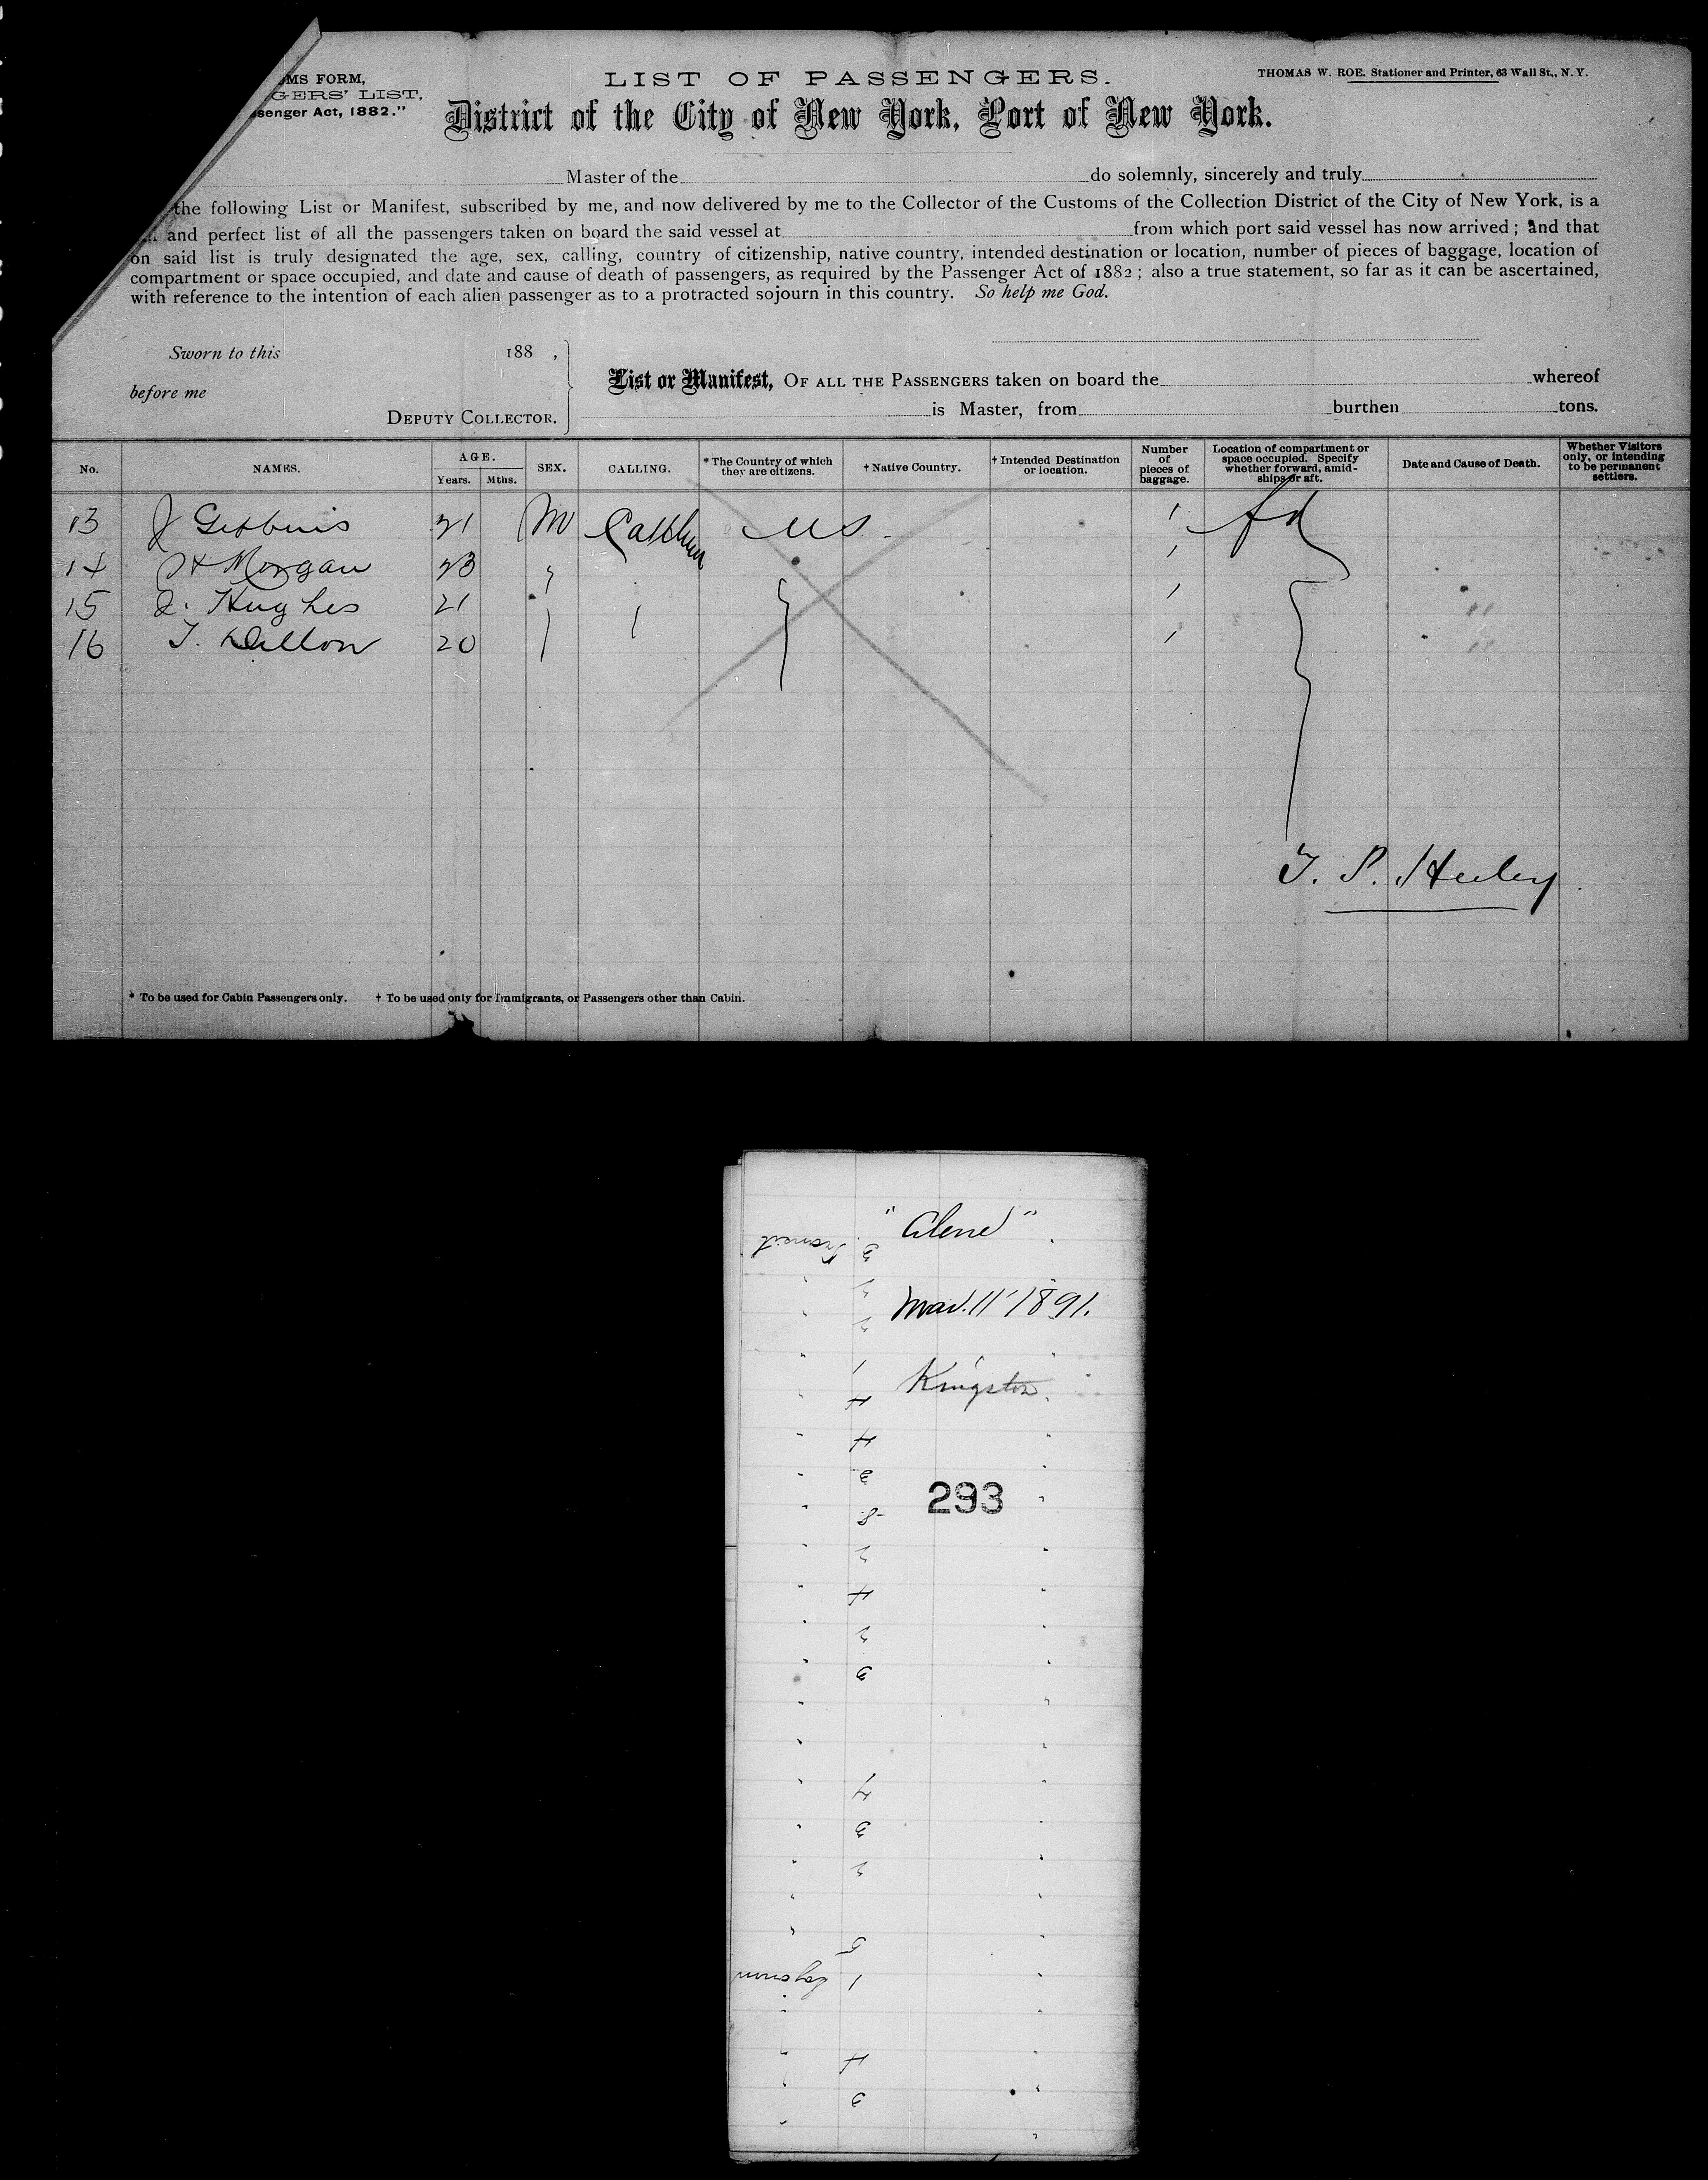 OMS FORM,
GERS' LIST,
ssenger Act, 1882."
LIST OF PASSENGERS.
THOMAS W. ROE. Stationer and Printer, 63 Wall St., N. Y.
District of the City of New York, Port of New York.
Master of the do solemnly, sincerely and truly
the following List or Manifest, subscribed by me, and now delivered by me to the Collector of the Customs of the Collection District of the City of New York, is a
and perfect list of all the passengers taken on board the said vessel at from which port said vessel has now arrived; and that
on said list is truly designated the age, sex, calling, country of citizenship, native country, intended destination or location, number of pieces of baggage, location of
compartment or space occupied, and date and cause of death of passengers, as required by the Passenger Act of 1882; also a true statement, so far as it can be ascertained,
with reference to the intention of each alien passenger as to a protracted sojourn in this country. So help me God.
Sworn to this 188 ,
before me
DEPUTY COLLECTOR.
List or Manifest, OF ALL THE PASSENGERS taken on board the whereof
is Master, from burthen tons.
No. NAMES. AGE. Years. Mths. SEX. CALLING. * The Country of which they are citizens. † Native Country. † Intended Destination or location. Number of pieces of baggage. Location of compartment or space occupied. Specify whether forward, amidships or aft. Date and Cause of Death. Whether Visitors only, or intending to be permanent settlers.
13 J 21 M US 1 fd
14 H Morgan 23 1
15 J. Hughes 21 1
16 T. Dillon 20 1
T. P. Heeley
* To be used for Cabin Passengers only. † To be used only for Immigrants, or Passengers other than Cabin.
"Alene"
Mar. 11' 1891.
Kingston.
293
Transit
3
2
2
1
4
4
3
8
2
4
2
3
4
3
2
5
1
4
3